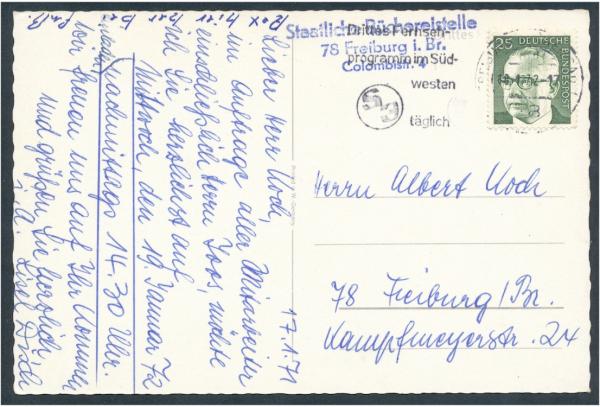 Staatliche Büchereistelle
78 Freiburg i. Br.
Colombistr. 4
Drittes Fernseh-
programm im Süd-
westen
S3
täglich
25
DEUTSCHE
BUNDESPOST
17.1.71
Lieber Herr Koch,
im Auftrage aller Mitarbeiter
einschließlich Herrn Joos, möchte
ich Sie herzlichst auf
Mittwoch, den 19. Januar 72
nachmittags 14.30 Uhr
Wir freuen uns auf Ihr Kommen
und grüßen Sie herzlich
i. A.
Herrn Albert Koch
78 Freiburg/Br.
Kampfmeyerstr. 24